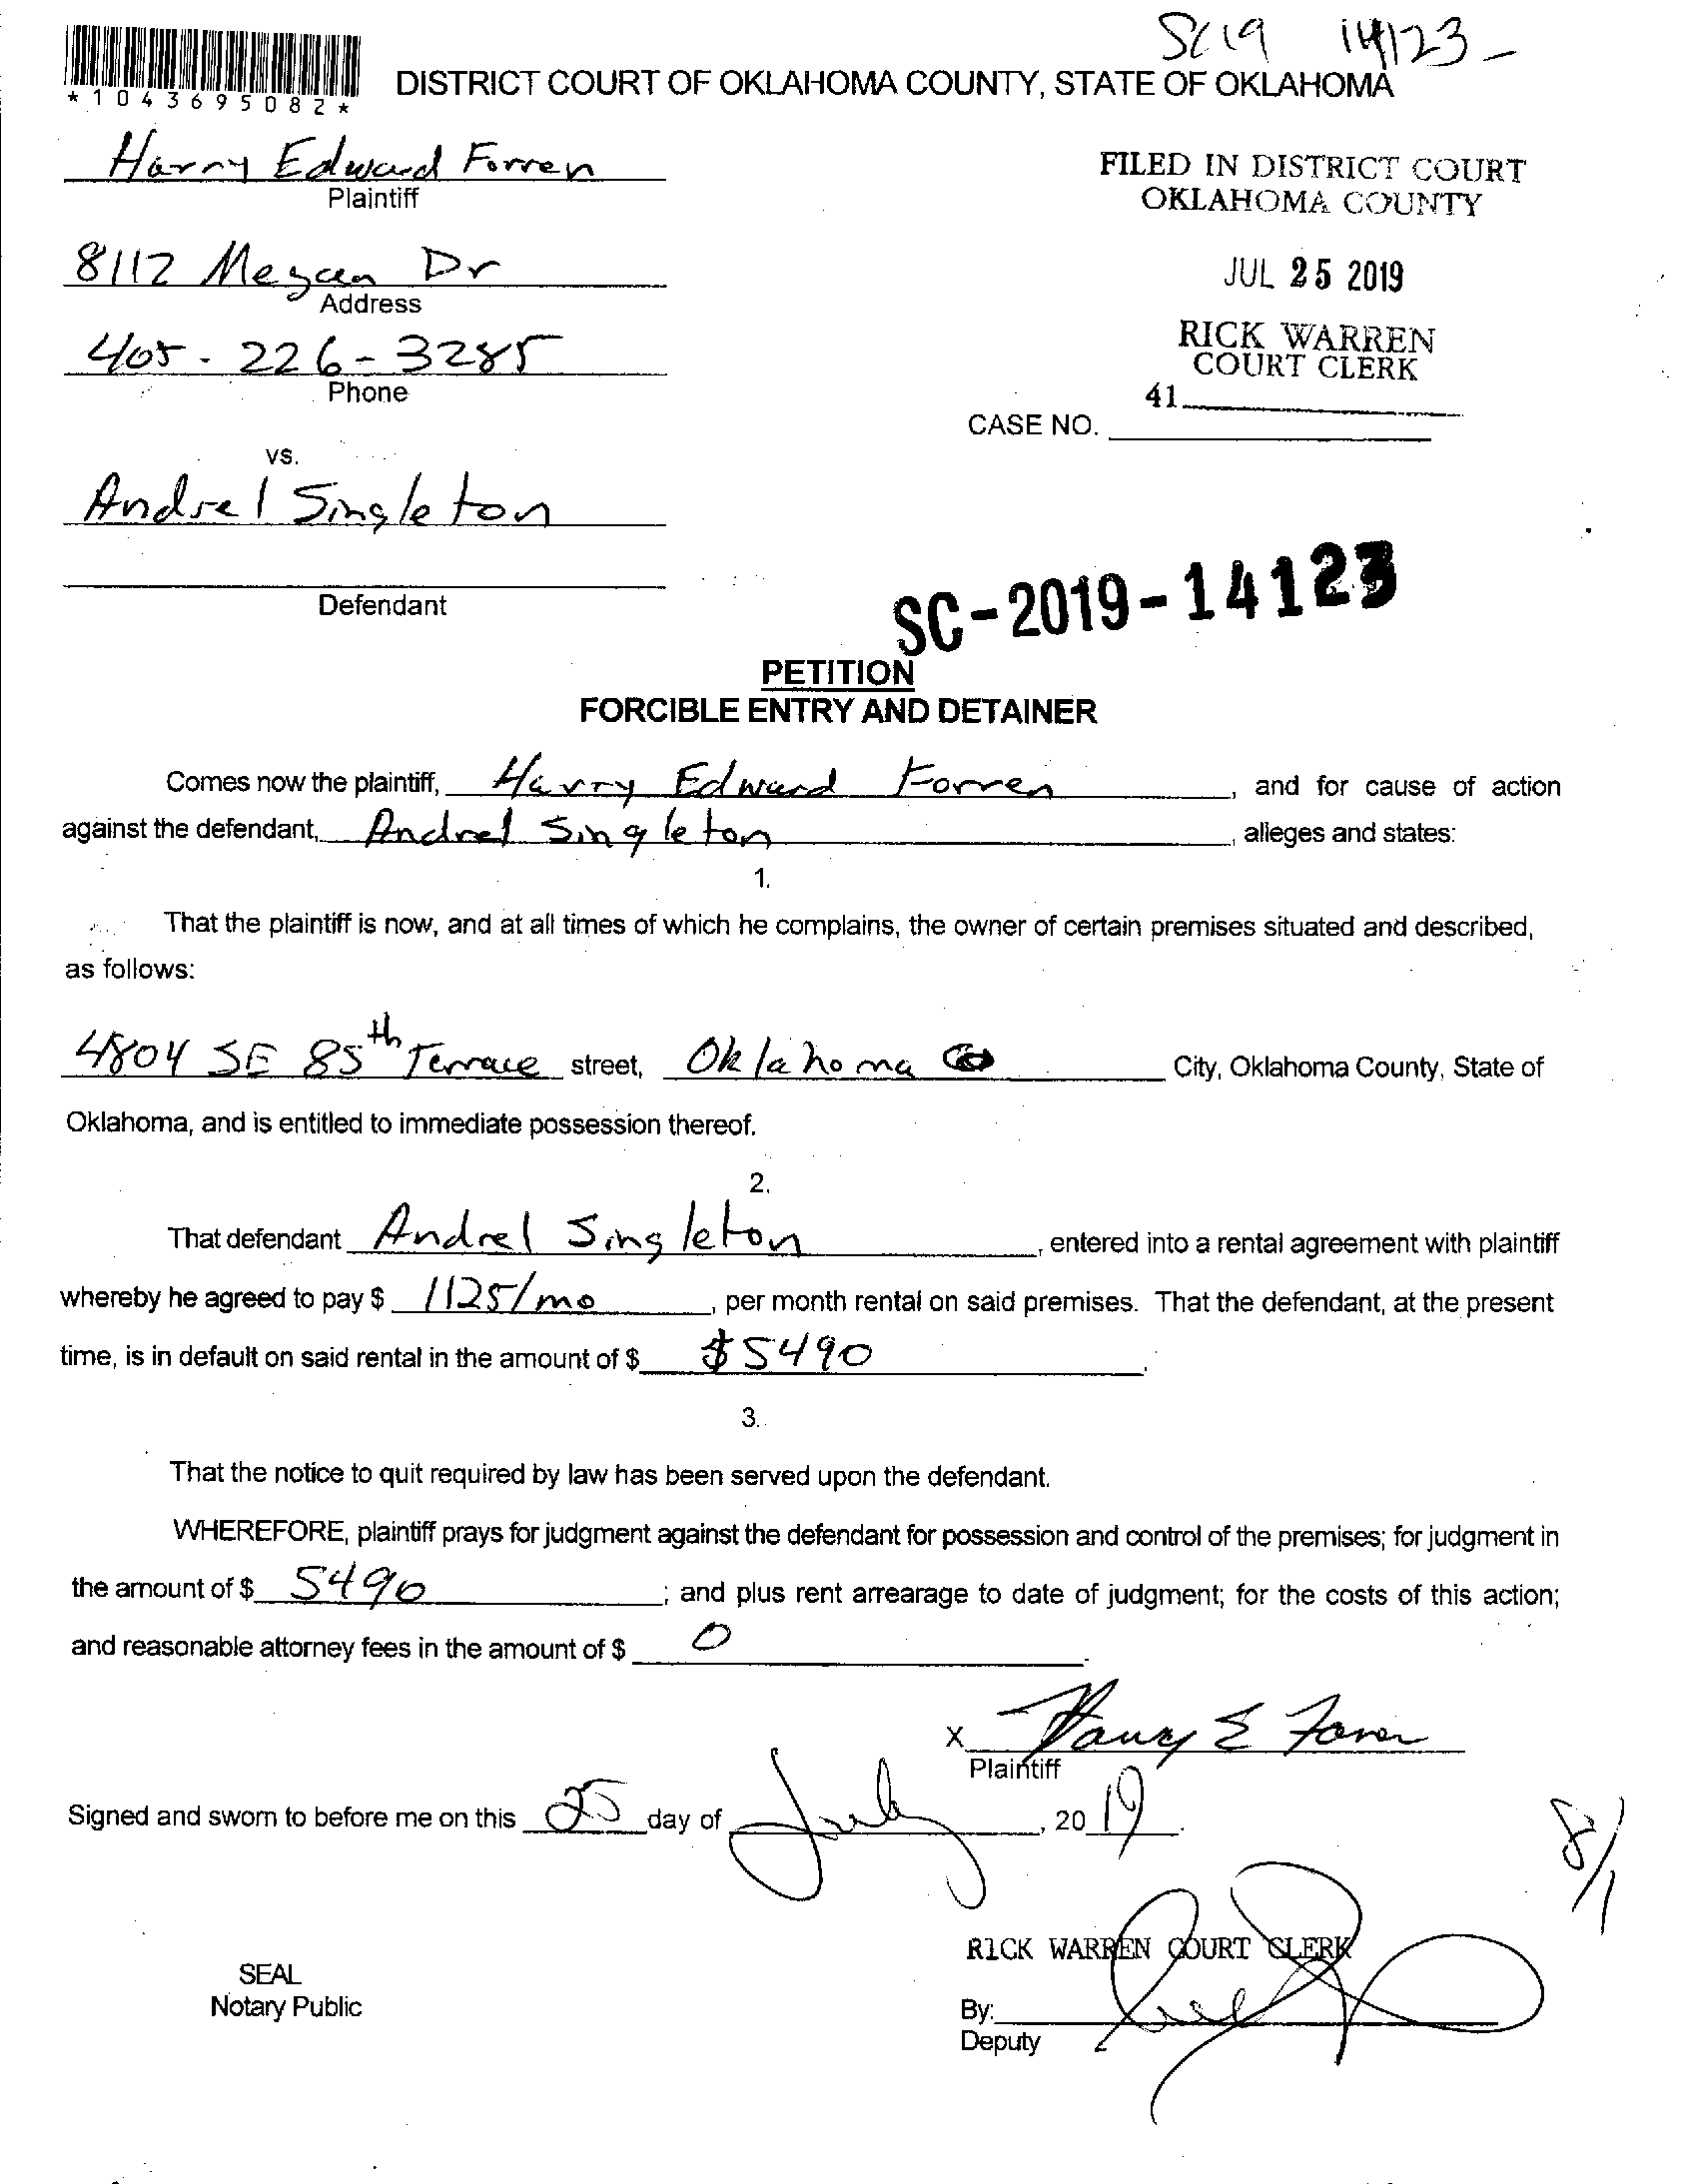 SC19 14123-
*1043695082*
DISTRICT COURT OF OKLAHOMA COUNTY, STATE OF OKLAHOMA
Harry Edward Forren
Plaintiff
FILED IN DISTRICT COURT
OKLAHOMA COUNTY
8112 Megan Dr
Address
JUL 25 2019
405-226-3285
Phone
RICK WARREN
COURT CLERK
41
CASE NO.
vs.
Andrel Singleton
Defendant
SC-2019-14123
PETITION
FORCIBLE ENTRY AND DETAINER
Comes now the plaintiff, Harry Edward Forren, and for cause of action
against the defendant, Andrel Singleton, alleges and states:
1.
That the plaintiff is now, and at all times of which he complains, the owner of certain premises situated and described,
as follows:
4804 SE 85th Terrace street, Oklahoma City, Oklahoma County, State of
Oklahoma, and is entitled to immediate possession thereof.
2.
That defendant Andrel Singleton, entered into a rental agreement with plaintiff
whereby he agreed to pay $ 1125/mo, per month rental on said premises. That the defendant, at the present
time, is in default on said rental in the amount of $ $5490.
3.
That the notice to quit required by law has been served upon the defendant.
WHEREFORE, plaintiff prays for judgment against the defendant for possession and control of the premises; for judgment in
the amount of $ 5490; and plus rent arrearage to date of judgment; for the costs of this action;
and reasonable attorney fees in the amount of $ 0.
X Harry E Forren
Plaintiff
Signed and sworn to before me on this 25 day of July, 2019.
8/1
RICK WARREN COURT CLERK
SEAL
Notary Public
By:
Deputy